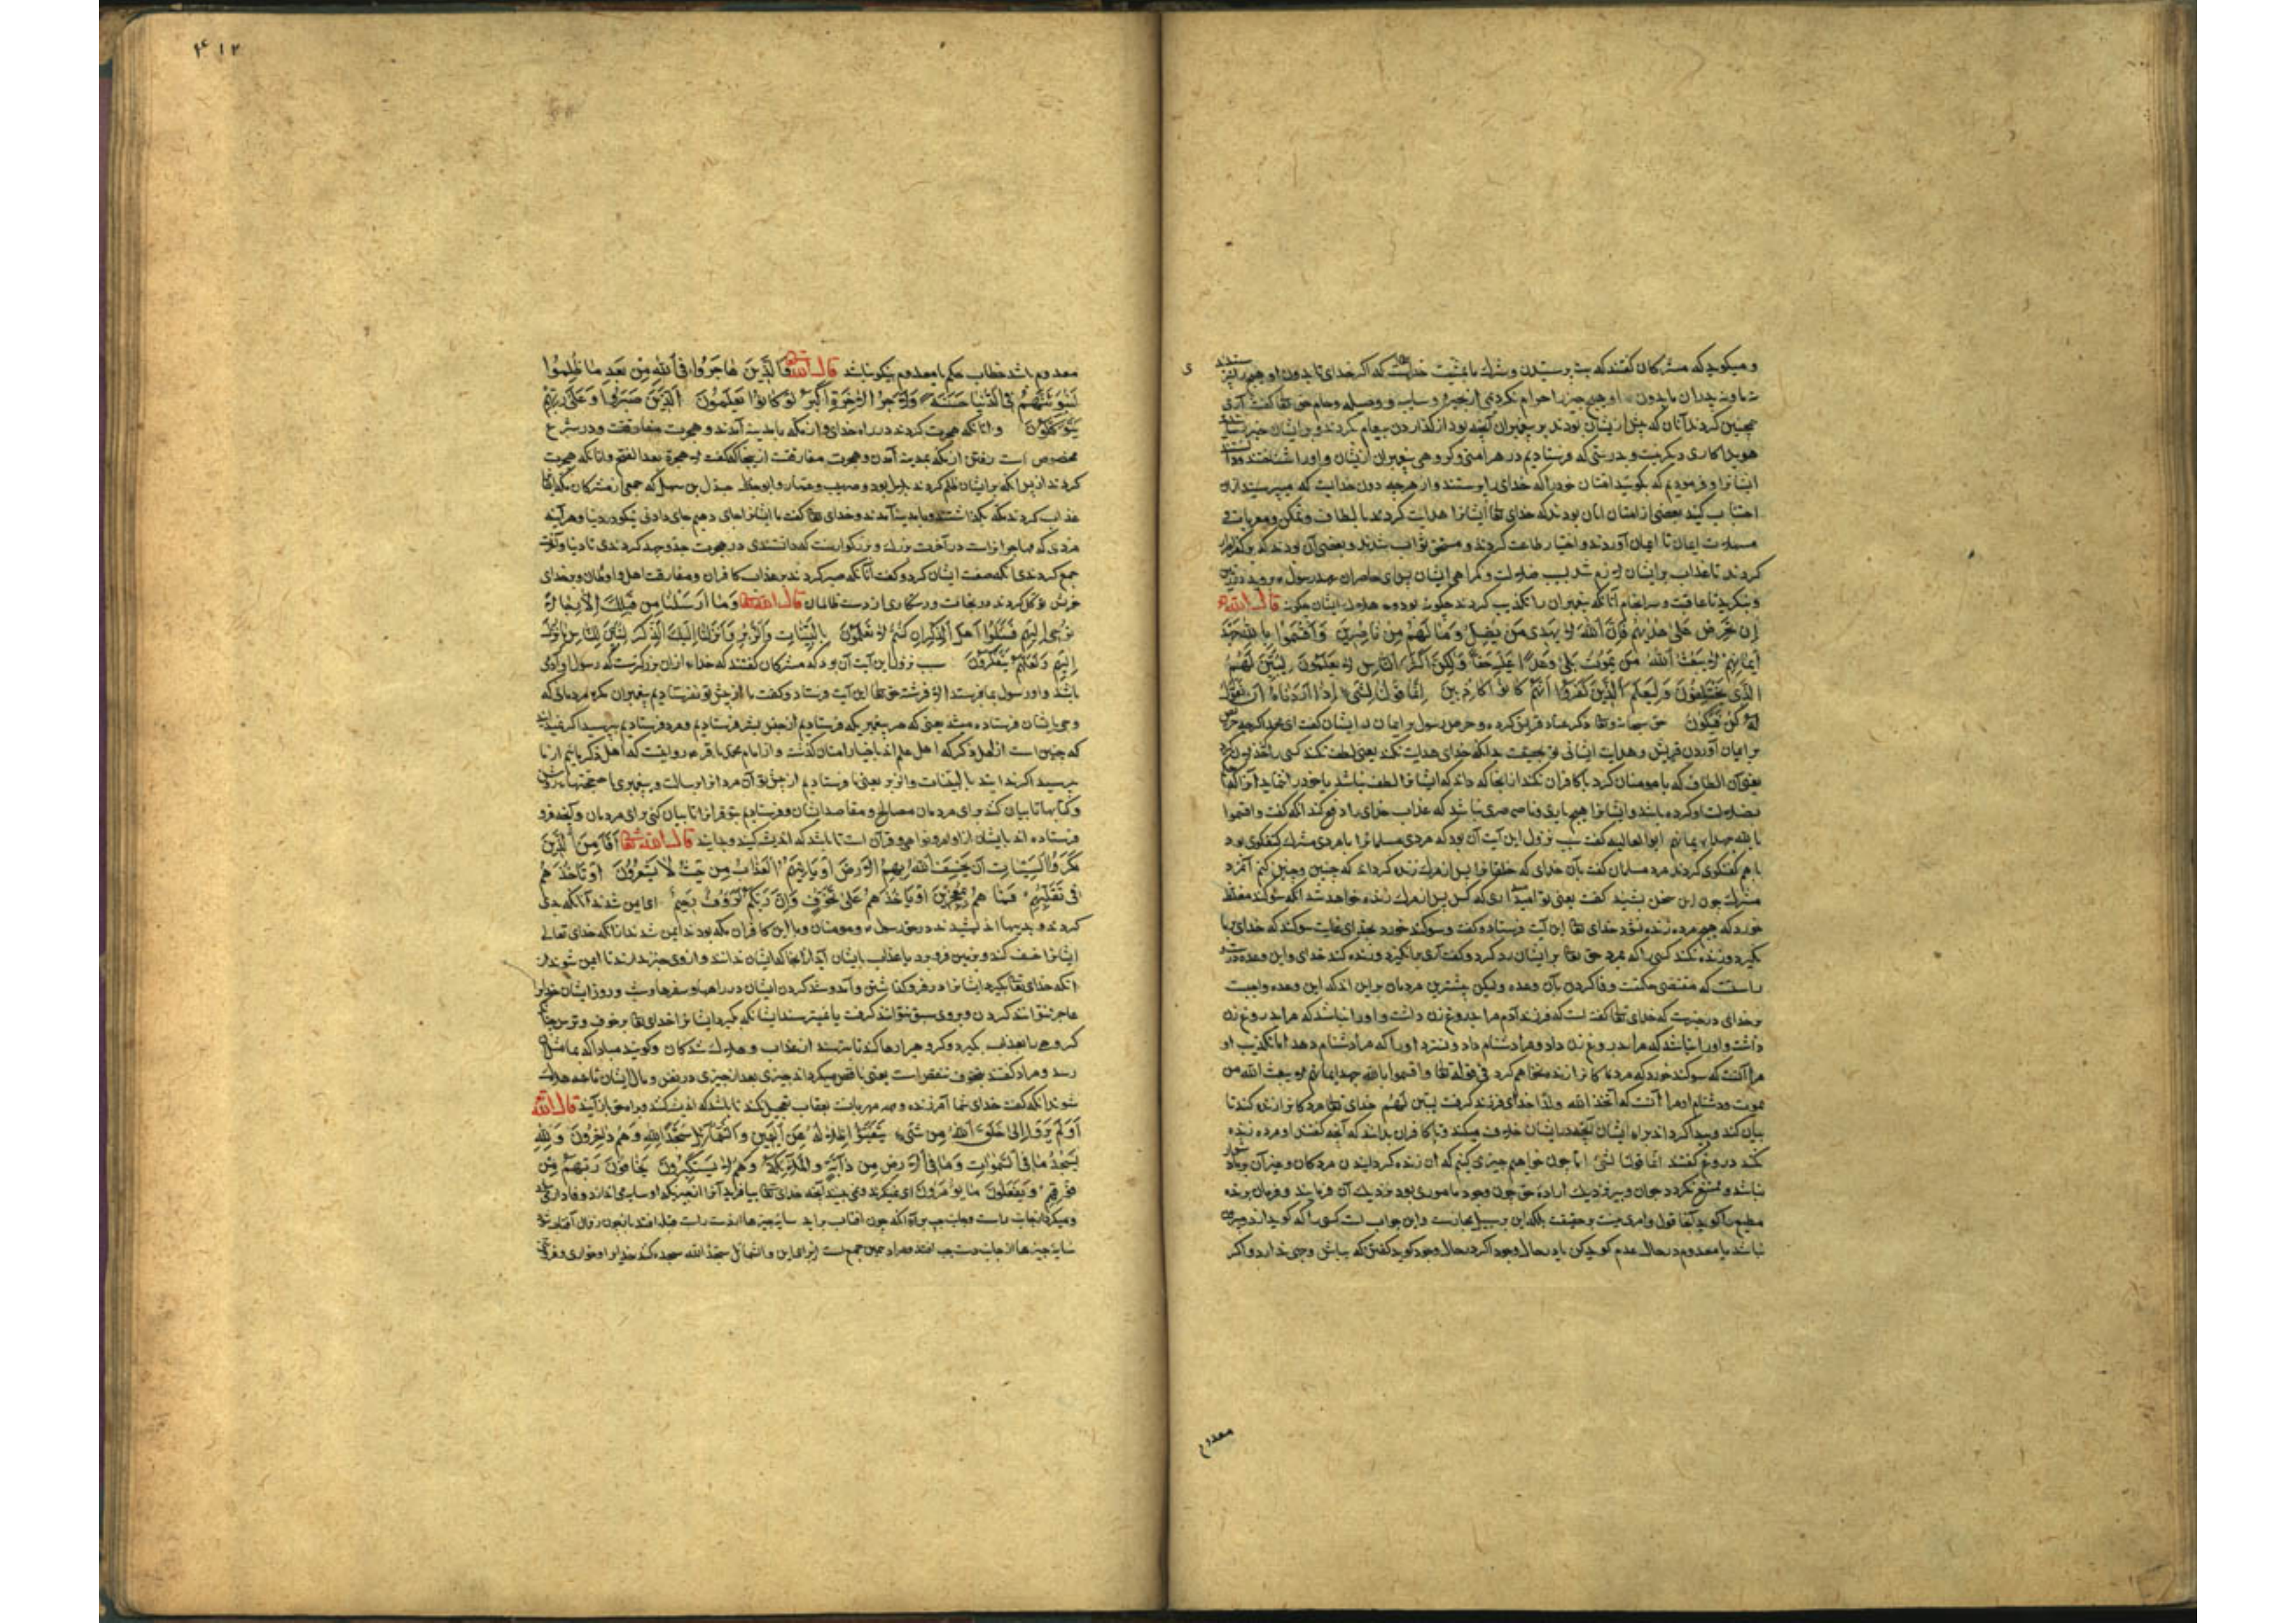 و میکوید که مشرکان کفتند که بت پرستیدن و شرک ما بمشیت خداست که اکر خدای تا بدون او هیچ
ما و نه پدران ما بدون او هیچ چیز را حرام نکردمی از بحیره و سایبه و وصیله و حام حق تعا کفت آری
همچنین کردند آنان که پیش ازیشان بودند بر پیغمبران آنچه بود از کذاردن پیغام کردند و بر ایشان
هویدا کاری دیکر نیست و بدرستی که فرستادیم در هر امتی و کروهی پیغمبران ازیشان و او را شناختند
ایشانرا و فرمودیم که بکویید امتان خود را که خدای را پرستند و از هرچه دون خدایست که میپرستید ازان
اجتناب کنید بعضی از امتان آنان بودند که خدای تعا ایشانرا هدایت کردند با لطاف و تمکن و
ایمان تا ایمان آوردند و اختیار طاعت کردند و مستحق ثواب شدند و بعضی آن بودند که
کردند تا عذاب بر ایشان لازم شد بسبب ضلالت و کمراهی ایشان پس ای حاضران عهد رسول بروید در زمین
و بنکرید تا عاقبت و سرانجام آنانکه پیغمبران را تکذیب کردند چکونه بود و هلاک ایشان چکونه قال الله
إِن تَحْرِصْ عَلَىٰ هُدَاهُمْ فَإِنَّ اللهَ لَا يَهْدِى مَن يُضِلُّ وَمَا لَهُمْ مِن نَاصِرِينَ وَأَقْسَمُوا بِاللهِ جَهْدَ
أَيْمَانِهِمْ لَا يَبْعَثُ اللهُ مَن يَمُوتُ بَلَىٰ وَعْدًا عَلَيْهِ حَقًّا وَلَٰكِنَّ أَكْثَرَ النَّاسِ لَا يَعْلَمُونَ لِيُبَيِّنَ لَهُمُ
الَّذِى يَخْتَلِفُونَ فِيهِ وَلِيَعْلَمَ الَّذِينَ كَفَرُوا أَنَّهُمْ كَانُوا كَاذِبِينَ إِنَّمَا قَوْلُنَا لِشَىْءٍ إِذَا أَرَدْنَاهُ أَن نَقُولَ
لَهُ كُن فَيَكُونُ حق سبحانه و تعا ذکر عناد قریش کرده و حرص رسول بر ایمان ایشان کفت ای محمد اکرچه
بر ایمان آوردن قریش و هدایت ایشانی تو بحقیقت بدانکه خدای هدایت نکند یعنی لطف نکند کسی را
یعنی آن الطاف که با مومنان کرد با کافران نکند ازانجا که داند که ایشانرا لطف نباشد
بضلالت او کرده باشد و ایشانرا هیچ یاری و ناصری نباشد که عذاب خدای را دفع کند آنکه کفت و اقسموا
بالله جهد ایمانهم ابوالعالیه کفت سبب نزول این آیت آن بود که مردی مسلمانرا با مردی مشرک کفتکوی بود
با هم کفتکوی کردند مرد مسلمان کفت بآن خدای که خلقانرا پس از مرک زنده کرداند که چنین و چنین کنم آنمرد
مشرک چون این سخن بشنید کفت یعنی تو امید داری که کس پس از مرک زنده خواهد شد آنکه سوکند مغلظ
خورد که هیچ مرده زنده نشود خدای تعا این آیت فرستاد و کفت و سوکند خورد بخدای بغایت سوکند که خدای
نکیرد و زنده نکند کسی را که بمرد حق تعا بر ایشان رد کرد و کفت آری بانکیزد و زنده کند خدای و این وعده
راست که مقتضی حکمت وفا کردن بآن وعده ولیکن بیشترین مردمان بر این اند که این وعده واجبست
بر خدای در خبرست که خدای تعا کفته است که فرزند آدم مرا بدروغ زن داشت و او را نباشد که مرا بدروغ زن
داشت و او را نباشد که مرا بدروغ زن داد و مرا دشنام داد و نسزد او را که مرا دشنام دهد اما تکذیب او
مرا آنست که سوکند خورد که مردکانرا زنده نخواهم کرد فی قوله تعا و اقسموا بالله جهد ایمانهم لا یبعث الله من
یموت و دشنام او مرا آنست که اتخذ الله ولدا خدای فرزند کرفت لیبین لهم خدای تعا مردکانرا زنده کند تا
بیان کند و پیدا کرداند براه ایشان آنچه در ایشان خلاف میکند و تا کافران بدانند که آنچه کفتند او مرده زنده
نکند دروغ کفتند انما قولنا لشیء اما چون خواهیم چیزی کنیم که آن زنده کردانیدن مردکان و جز آن
نباشد و ممتنع نکردد چنان و نیز نزدیک اراده حق چون وجود ماموری بود نزدیک آن فرمانبرنده
مطیع را کوید آنجا قول و امری نیست بحقیقت بلکه این بر سبیل مجازست و این جواب است کسی را که کوید
نباشد یا معدوم در حال عدم کوید کن یا در حال وجود اکر در حال وجود کوید کفتن که بباش وجهی ندارد و اکر
معدوم
۴۱۲
معدوم باشد خطاب حکیم با معدوم نیکو نباشد قال الله تعا وَالَّذِينَ هَاجَرُوا فِى اللهِ مِن بَعْدِ مَا ظُلِمُوا
لَنُبَوِّئَنَّهُمْ فِى الدُّنْيَا حَسَنَةً وَلَأَجْرُ الْآخِرَةِ أَكْبَرُ لَوْ كَانُوا يَعْلَمُونَ الَّذِينَ صَبَرُوا وَعَلَىٰ رَبِّهِمْ
يَتَوَكَّلُونَ و آنانکه هجرت کردند در راه خدای و از مکه با مدینه آمدند و هجرت مفارقت و در شرع
مخصوص است رفتن از مکه بمدینه آمدن و هجرت مفارقت ازینجا که کفت لا هجرة بعد الفتح و آنانکه هجرت
کردند از پس آنکه بر ایشان ظلم کردند بلال بود و صهیب و عمار و ابوجندل بن سهیل که جمعی از مشرکان مکه
عذاب کردند مکه بکذاشتند و با مدینه آمدند و خدای تعا کفت ما ایشانرا جای دهیم جای دادنی نیکو در دنیا و هرآینه
مزدی که مهاجرانراست در آخرت بزرک و بزرکوارست که دانستندی در هجرت جد و جهد کردندی تا دنیا و آخرت
جمع کردندی آنکه صفت ایشان کرد و کفت آنانکه صبر کردند بر عذاب کافران و مفارقت اهل و اوطان و بخدای
خویش توکل کردند در نجات و رستکاری از دست ظالمان قال الله تعا وَمَا أَرْسَلْنَا مِن قَبْلِكَ إِلَّا رِجَالًا
نُوحِى إِلَيْهِمْ فَسْئَلُوا أَهْلَ الذِّكْرِ إِن كُنتُمْ لَا تَعْلَمُونَ بِالْبَيِّنَاتِ وَالزُّبُرِ وَأَنزَلْنَا إِلَيْكَ الذِّكْرَ لِتُبَيِّنَ لِلنَّاسِ مَا نُزِّلَ
إِلَيْهِمْ وَلَعَلَّهُمْ يَتَفَكَّرُونَ سبب نزول این آیت آن بود که مشرکان کفتند که خدا ازان بزرکترست که رسول او آدمی
باشد و او رسول بما نفرستد الا فرشته حق تعا این آیت فرستاد و کفت ما از پیش تو نفرستادیم پیغمبران مکر مردمانی که
وحی بایشان فرستاده میشد یعنی که هر پیغمبر یکه فرستادیم از جنس بشر فرستادیم و مرد فرستادیم بپرسید اکر
که چنین است از اهل ذکر که اهل علم اند باخبار امتان کذشته و از امام محمد باقر روایتست که اهل ذکر ماییم از ما
بپرسید اکر ندانید بالبینات و الزبر یعنی ما فرستادیم از پیش تو آن مردانرا برسالت و پیغمبری با حجتها
و کتابها تا بیان کند برای مردمان مصالح و مقاصد ایشان و فرستادیم بتو قرآنرا تا بیان کنی برای مردمان آنچه فرو
فرستاده اند بایشان از اوامر و نواهی و قرآن است تا باشد که اندیشه کنند و بدانند قال الله تعا أَفَأَمِنَ الَّذِينَ
مَكَرُوا السَّيِّئَاتِ أَن يَخْسِفَ اللهُ بِهِمُ الْأَرْضَ أَوْ يَأْتِيَهُمُ الْعَذَابُ مِن حَيْثُ لَا يَشْعُرُونَ أَوْ يَأْخُذَهُمْ
فِى تَقَلُّبِهِمْ فَمَا هُمْ بِمُعْجِزِينَ أَوْ يَأْخُذَهُمْ عَلَىٰ تَخَوُّفٍ فَإِنَّ رَبَّكُمْ لَرَؤُوفٌ رَحِيمٌ ای ایمن شدند آنانکه بدی
کردند و بدیها اندیشیدند در حق رسول و مومنان و با این کافران مکه بودند ایمن شدند آنانکه خدای تعالی
ایشانرا خسف کند و بزمین فرو برد یا عذاب بایشان آید ازانجا که ایشان ندانند و ازوی خبر ندارند تا ایمن شوند
آنکه خدای تعا بکیرد ایشانرا در فروکذاشتن و آمد و شد کردن ایشان در راهها و سفرها و شب و روز ایشان خدایرا
عاجز نتوانند کردن و بر وی سبق نتوانند کرفت یا نمیترسند ایشانکه بکیرد ایشانرا خدای تعا بر خوف و ترس
کروهی را بعذاب بکیرد و کروهی را رها کند تا بترسند از عذاب و هلاک شدکان و کویند مبادا که بما مثل
رسد و مراد کفتند بتخوف تنقص است یعنی ناقص میکرداند چیزی بعد از چیزی در نفس و مال ایشان تا همه هلاک
شوند آنکه کفت خدای شما آمرزنده و مهربانست بعقاب تعجیل نکند تا باشد که اندیشه کنند و براه حق باز آیند قال الله
أَوَلَمْ يَرَوْا إِلَىٰ مَا خَلَقَ اللهُ مِن شَىْءٍ يَتَفَيَّؤُا ظِلَالُهُ عَنِ الْيَمِينِ وَالشَّمَائِلِ سُجَّدًا لِلهِ وَهُمْ دَاخِرُونَ وَلِلهِ
يَسْجُدُ مَا فِى السَّمَوَاتِ وَمَا فِى الْأَرْضِ مِن دَابَّةٍ وَالْمَلَائِكَةُ وَهُمْ لَا يَسْتَكْبِرُونَ يَخَافُونَ رَبَّهُمْ مِن
فَوْقِهِمْ وَيَفْعَلُونَ مَا يُؤْمَرُونَ ای نمیکرند و نمی بینند آنچه خدای تعا بیافرید آنرا از چیز یکه او سایه می اندازد
و میکردد از جانب راست و جانب چپ برای آنکه چون آفتاب برآید سایه چیزها از دست راست قبله افتد باز چون زوال آفتاب
سایه چیزها از جانب دست چپ افتد و مراد جمع است برای این و الشمائل سجدا لله سجده کنند خدایرا و خواری و